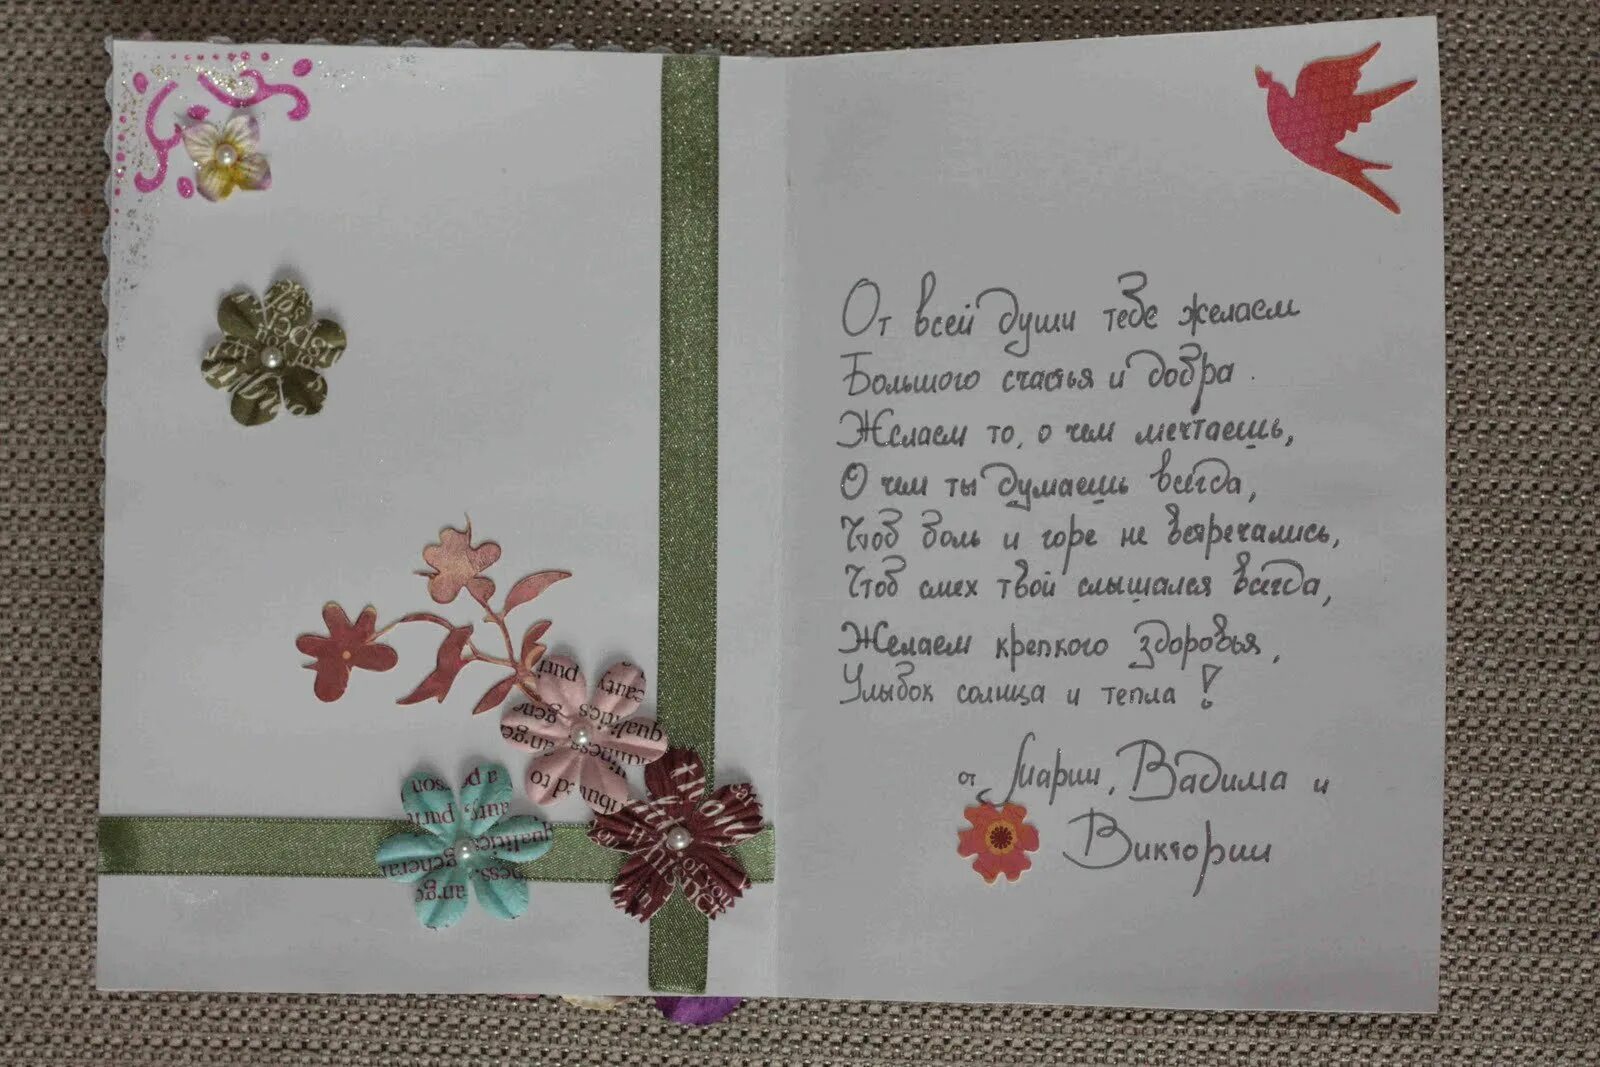 От всей души тебе желаем
Большого счастья и добра.
Желаем то, о чем мечтаешь,
О чем ты думаешь всегда,
Чтоб боль и горе не встречались,
Чтоб смех твой слышался всегда,
Желаем крепкого здоровья,
Улыбок солнца и тепла!
от Марии, Вадима и
Виктории